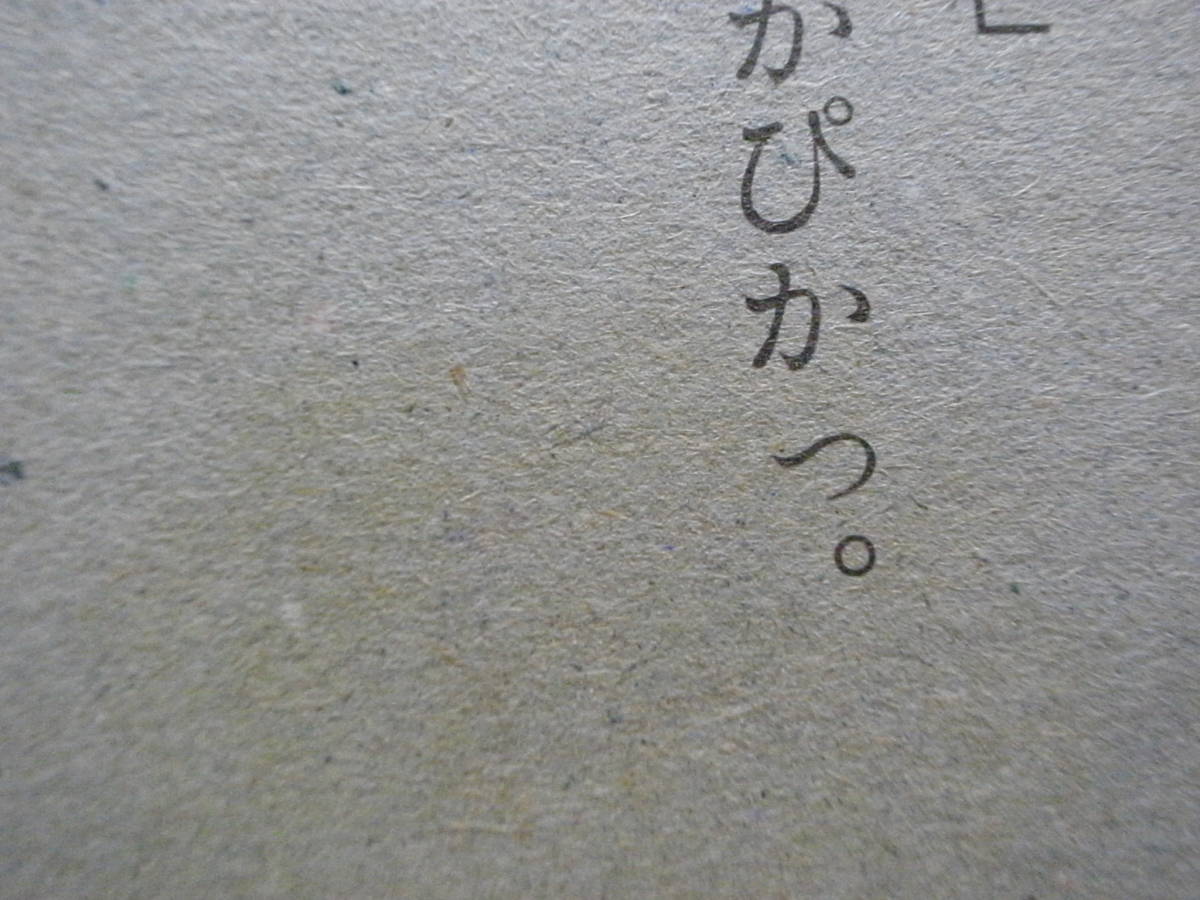 」
かぴかっ。